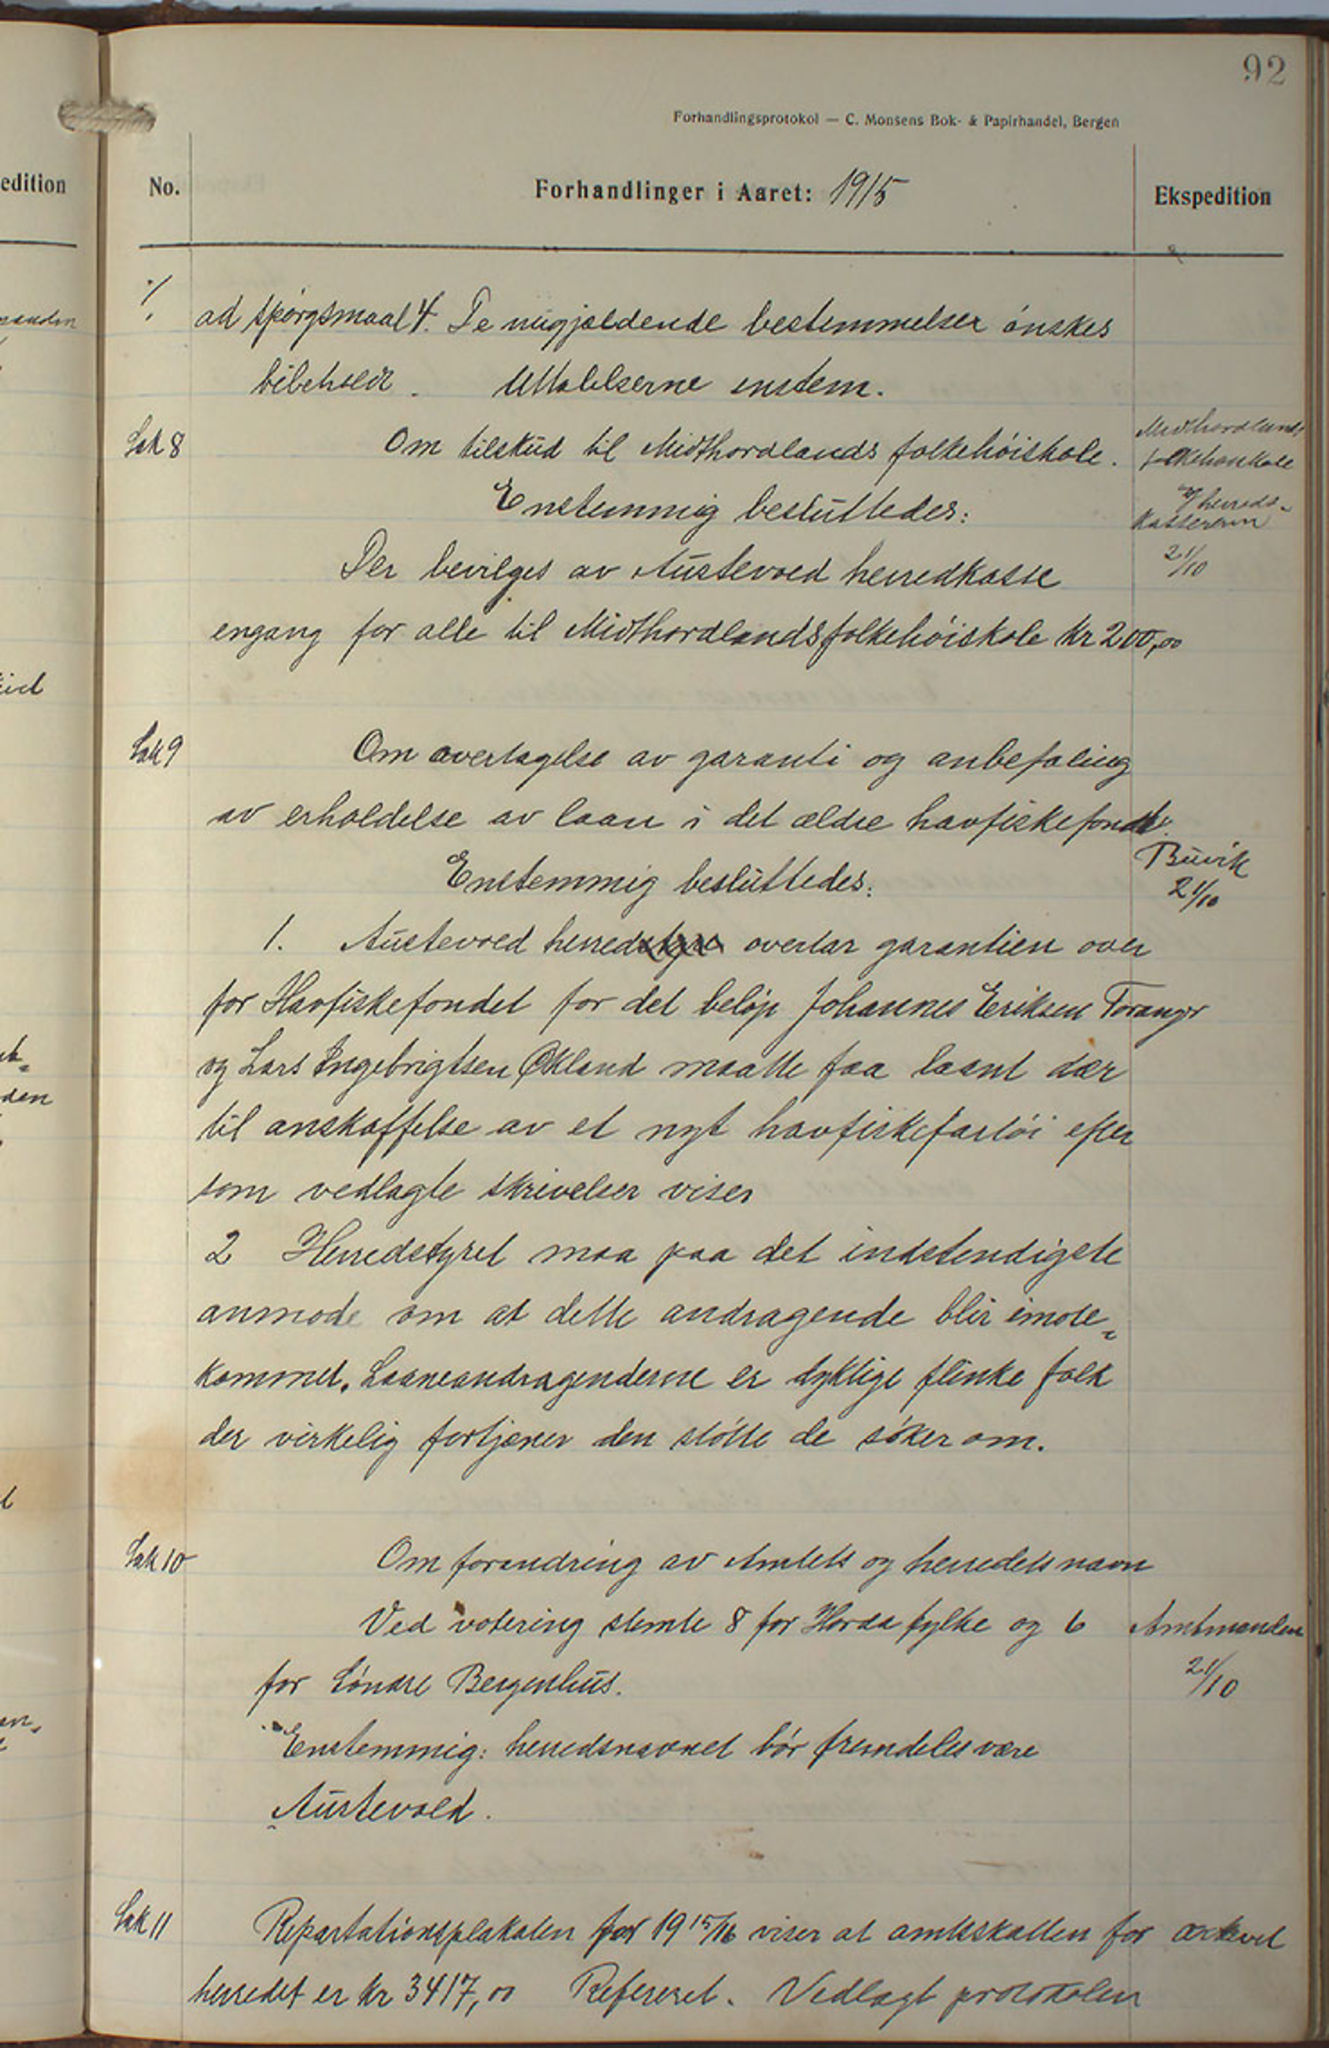 92
Forhandlingsprotokol — C. Monsens Bok- & Papirhandel, Bergen
edition
No.
Forhandlinger i Aaret: 1915
Ekspedition
./.
ad spørgsmaal 4. De nugjældende bestemmelser ønskes
bibeholdt. Uttalelserne enstem.
Sak 8
Om tilskud til Midthordlands folkehøiskole.
Midthordlands
folkehøiskole
Enstemmig besluttedes:
og herreds-
kassereren
21/10
Der bevilges av Austevold herredkasse
engang for alle til Midthordlands folkehøiskole kr 200,00
Sak 9
Om overtagelse av garanti og anbefaling
av erholdelse av laan i det ældre havfiskefond:
Enstemmig besluttedes:
Buvik
21/10
1. Austevold herred overtar garantien over
for Havfiskefondet for det beløp Johannes Eriksen Torangr
og Lars Ingebrigtsen Økland maatte faa laant dær
til anskaffelse av et nyt havfiskefartøi efter
som vedlagte skrivelser viser
2 Herredstyret maa paa det indstendigste
anmode om at dette andragende blir imøte-
kommet. Laaneandragenderne er dyktige flinke folk
der virkelig fortjener den støtte de søker om.
Sak 10
Om forandring av Amtets og herredets navn
Ved votering stemte 8 for Horda fylke og 6
Amtmanden
21/10
for Søndre Bergenhus.
Enstemmig: herredsnavnet bør fremdeles være
Austevold.
Sak 11
Repartationsplakaten for 1915/16 viser at amtsskatten for
arkvet
herredet er kr 3417,00 Refereret. Vedlagt protokolen